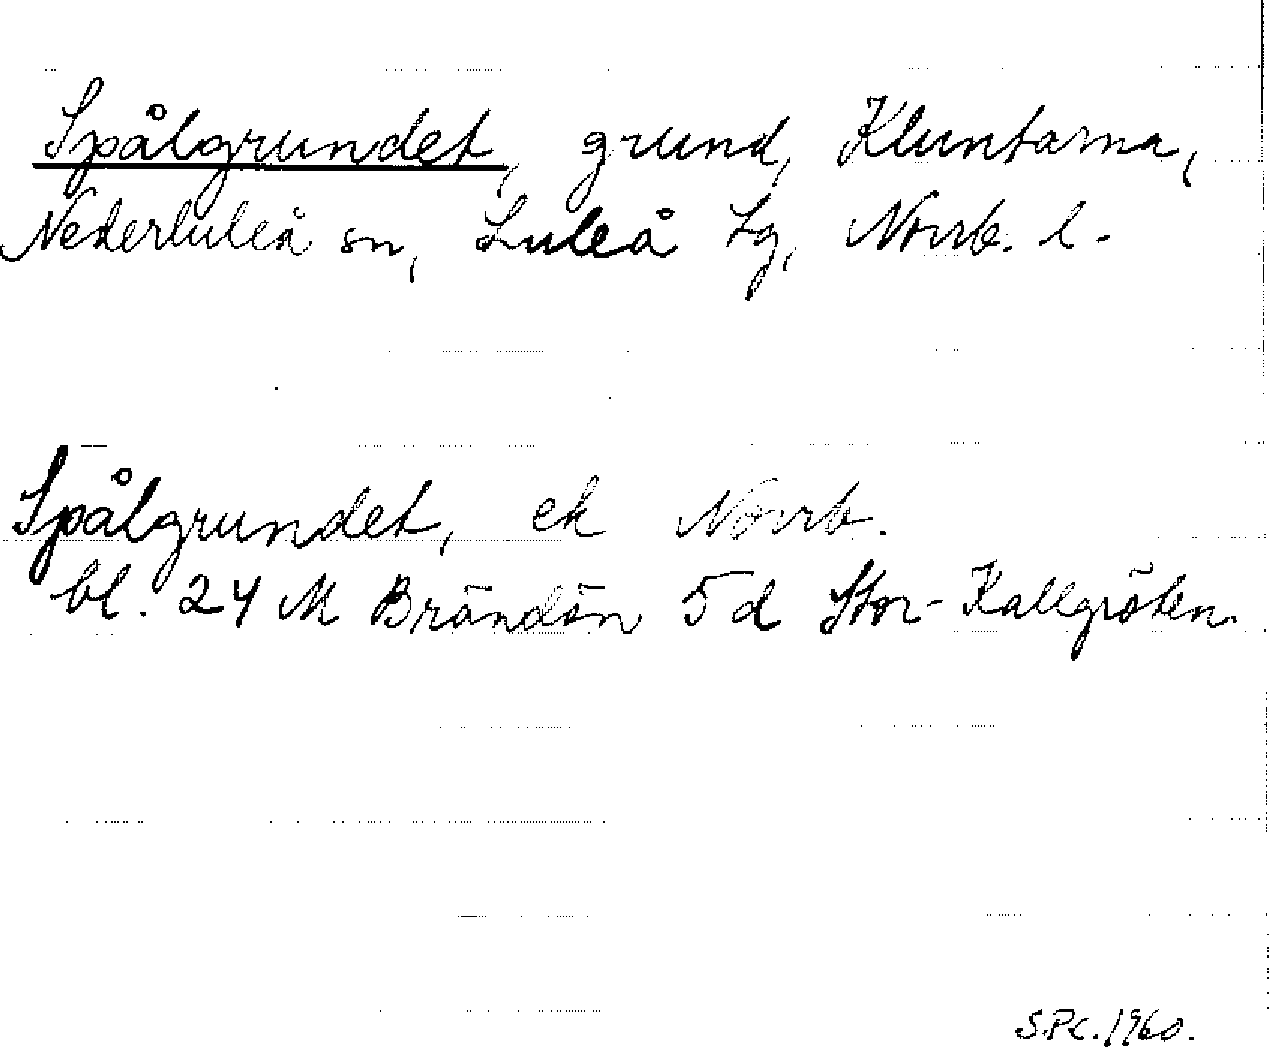 Spålgrundet, grund, Kluntarna,
Nederluleå sn, Luleå tg, Norrb. l.
Spålgrundet, ek Norrb.
bl. 24 M Brändön 5d Stor-Kallgröten.
S.P.C. 1960.